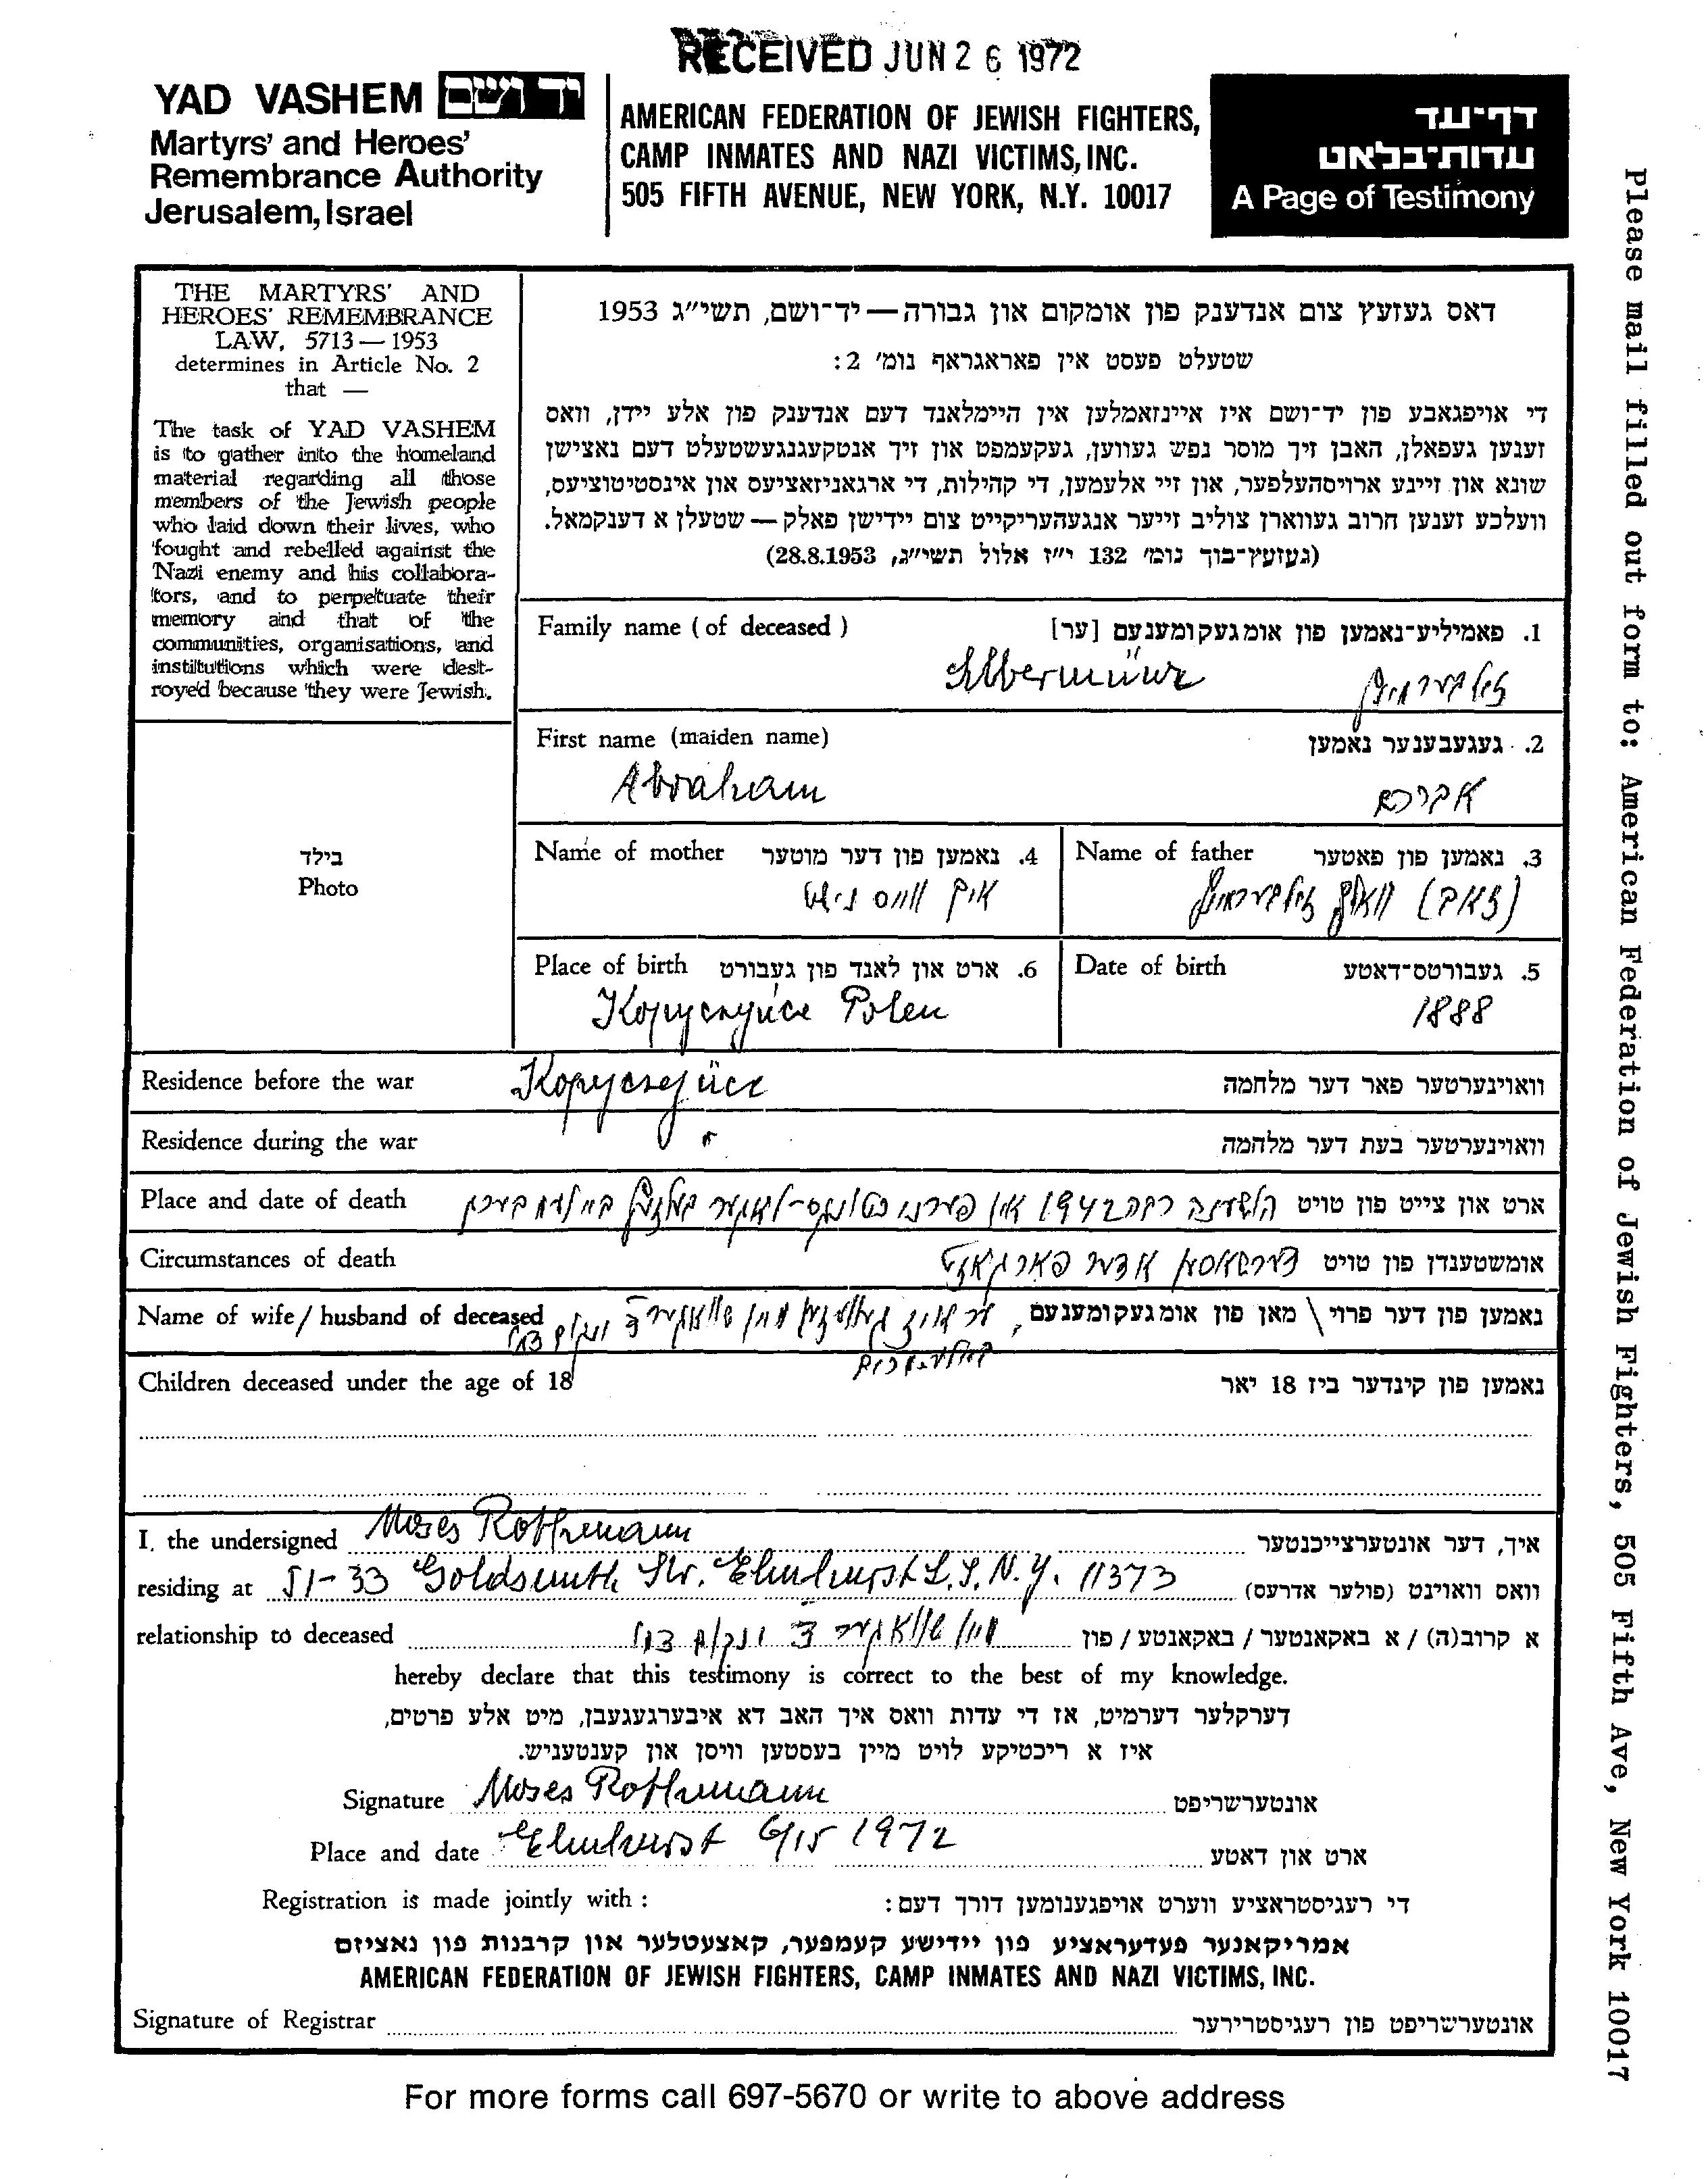 RECEIVED JUN 26 1972
YAD VASHEM יד ושם
Martyrs' and Heroes'
Remembrance Authority
Jerusalem, Israel
AMERICAN FEDERATION OF JEWISH FIGHTERS,
CAMP INMATES AND NAZI VICTIMS, INC.
505 FIFTH AVENUE, NEW YORK, N.Y. 10017
דף־עד
עדות־בלאט
A Page of Testimony
Please mail filled out form to: American Federation of Jewish Fighters, 505 Fifth Ave, New York 10017
THE MARTYRS' AND
HEROES' REMEMBRANCE
LAW, 5713 — 1953
determines in Article No. 2
that —
The task of YAD VASHEM
is to gather into the homeland
material regarding all those
members of the Jewish people
who laid down their lives, who
fought and rebelled against the
Nazi enemy and his collabora-
tors, and to perpetuate their
memory and that of the
communities, organisations, and
institutions which were dest-
royed because they were Jewish.
דאס געזעץ צום אנדענק פון אומקום און גבורה — יד־ושם, תשי״ג 1953
שטעלט פעסט אין פאראגראף נומ׳ 2:
די אויפגאבע פון יד־ושם איז איינזאמלען אין היימלאנד דעם אנדענק פון אלע יידן, וואס
זענען געפאלן, האבן זיך מוסר נפש געווען, געקעמפט און זיך אנטקעגנגעשטעלט דעם נאצישן
שונא און זיינע ארויסהעלפער, און זיי אלעמען, די קהילות, די ארגאניזאציעס און אינסטיטוציעס,
וועלכע זענען חרוב געווארן צוליב זייער אנגעהעריקייט צום יידישן פאלק — שטעלן א דענקמאל.
(געזעץ־בוך נומ׳ 132 י״ז אלול תשי״ג, 28.8.1953)
Family name (of deceased) 1. פאמיליע־נאמען פון אומגעקומענעם [ער]
Silbermünz זילבערמינץ
First name (maiden name) 2. געגעבענער נאמען
Abraham אברהם
Name of mother 4. נאמען פון דער מוטער
איך ווייס נישט
Name of father 3. נאמען פון פאטער
(זאב) וואלף זילבערמינץ
Place of birth 6. ארט און לאנד פון געבורט
Kopyczynce Polen
Date of birth 5. געבורטס־דאטע
1888
בילד
Photo
Residence before the war Kopyczynce וואוינערטער פאר דער מלחמה
Residence during the war " וואוינערטער בעת דער מלחמה
Place and date of death ארט און צייט פון טויט הושענה רבה 1942 אין פערניכטונגס-לאגער בעלזעץ ביי לעמבערג
Circumstances of death אומשטענדן פון טויט דערשאסן אדער פארגאזט
Name of wife / husband of deceased נאמען פון דער פרוי \ מאן פון אומגעקומענעם, ער איז געווען מיין שוואגער'ס
Children deceased under the age of 18 נאמען פון קינדער ביז 18 יאר
I, the undersigned Moses Rothmann איך, דער אונטערצייכנטער
residing at 51-33 Goldsmith Str. Elmhurst L.I. N.Y. 11373 וואס וואוינט (פולער אדרעס)
relationship to deceased מיין שוואגער'ס א קרוב(ה) / א באקאנטער / באקאנטע / פון
hereby declare that this testimony is correct to the best of my knowledge.
דערקלער דערמיט, אז די עדות וואס איך האב דא איבערגעגעבן, מיט אלע פרטים,
איז א ריכטיקע לויט מיין בעסטען וויסן און קענטעניש.
Signature Moses Rothmann אונטערשריפט
Place and date Elmhurst 6/15 1972 ארט און דאטע
Registration is made jointly with: די רעגיסטראציע ווערט אויפגענומען דורך דעם:
אמריקאנער פעדעראציע פון יידישע קעמפער, קאצעטלער און קרבנות פון נאציזם
AMERICAN FEDERATION OF JEWISH FIGHTERS, CAMP INMATES AND NAZI VICTIMS, INC.
Signature of Registrar אונטערשריפט פון רעגיסטרירער
For more forms call 697-5670 or write to above address